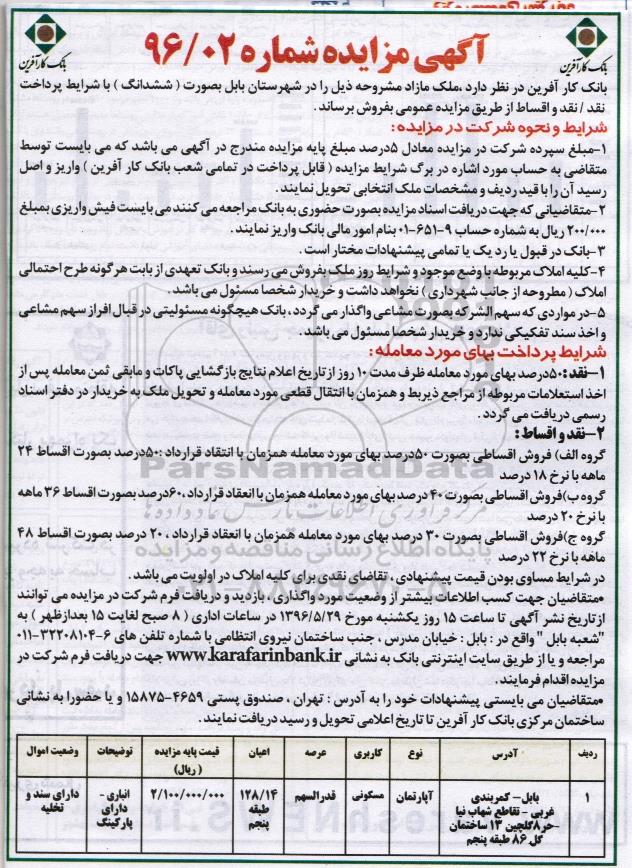 آگهی مزایده شماره ۹۶/۰۲
بانک کارآفرین
بانک کارآفرین
بانک کار آفرین در نظر دارد ،ملک مازاد مشروحه ذیل را در شهرستان بابل بصورت ( ششدانگ ) با شرایط پرداخت
نقد / نقد و اقساط از طریق مزایده عمومی بفروش برساند.
شرایط و نحوه شرکت در مزایده:
۱-مبلغ سپرده شرکت در مزایده معادل ۵درصد مبلغ پایه مزایده مندرج در آگهی می باشد که می بایست توسط
متقاضی به حساب مورد اشاره در برگ شرایط مزایده ( قابل پرداخت در تمامی شعب بانک کار آفرین ) واریز و اصل
رسید آن را با قید ردیف و مشخصات ملک انتخابی تحویل نمایند.
۲-متقاضیانی که جهت دریافت اسناد مزایده بصورت حضوری به بانک مراجعه می کنند می بایست فیش واریزی بمبلغ
۲۰۰/۰۰۰ ریال به شماره حساب ۹-۶۵۱-۰۱ بنام امور مالی بانک واریز نمایند.
۳-بانک در قبول یا رد یک یا تمامی پیشنهادات مختار است.
۴-کلیه املاک مربوطه با وضع موجود و شرایط روز ملک بفروش می رسند و بانک تعهدی از بابت هر گونه طرح احتمالی
املاک ( مطروحه از جانب شهرداری ) نخواهد داشت و خریدار شخصا مسئول می باشد.
۵-در مواردی که سهم الشرکه بصورت مشاعی واگذار می گردد، بانک هیچگونه مسئولیتی در قبال افراز سهم مشاعی
و اخذ سند تفکیکی ندارد و خریدار شخصا مسئول می باشد.
شرایط پرداخت بهای مورد معامله:
۱-نقد:۵۰درصد بهای مورد معامله ظرف مدت ۱۰ روز از تاریخ اعلام نتایج بازگشایی پاکات و مابقی ثمن معامله پس از
اخذ استعلامات مربوطه از مراجع ذیربط و همزمان با انتقال قطعی مورد معامله و تحویل ملک به خریدار در دفتر اسناد
رسمی دریافت می گردد.
۲-نقد و اقساط:
گروه الف) فروش اقساطی بصورت ۵۰درصد بهای مورد معامله همزمان با انتقاد قرارداد :۵۰درصد بصورت اقساط ۲۴
ماهه با نرخ ۱۸ درصد
گروه ب)فروش اقساطی بصورت ۴۰ درصد بهای مورد معامله همزمان با انعقاد قرارداد ،۶۰درصد بصورت اقساط ۳۶ ماهه
با نرخ ۲۰ درصد
گروه ج)فروش اقساطی بصورت ۳۰ درصد بهای مورد معامله همزمان با انعقاد قرارداد ،۲۰ درصد بصورت اقساط ۴۸
ماهه با نرخ ۲۲ درصد
در شرایط مساوی بودن قیمت پیشنهادی ، تقاضای نقدی برای کلیه املاک در اولویت می باشد.
•متقاضیان جهت کسب اطلاعات بیشتر از وضعیت مورد واگذاری ، بازدید و دریافت فرم شرکت در مزایده می توانند
از تاریخ نشر آگهی تا ساعت ۱۵ روز یکشنبه مورخ ۱۳۹۶/۵/۲۹ در ساعات اداری ( ۸ صبح لغایت ۱۵ بعدازظهر ) به
"شعبه بابل " واقع در : بابل : خیابان مدرس ، جنب ساختمان نیروی انتظامی با شماره تلفن های ۶-۳۲۲۰۸۱۰۴-۰۱۱
مراجعه و یا از طریق سایت اینترنتی بانک به نشانی www.karafarinbank.ir جهت دریافت فرم شرکت در
مزایده اقدام فرمایند.
•متقاضیان می بایستی پیشنهادات خود را به آدرس : تهران ، صندوق پستی ۴۶۵۹-۱۵۸۷۵ و یا حضورا به نشانی
ساختمان مرکزی بانک کار آفرین تا تاریخ اعلامی تحویل و رسید دریافت نمایند.
ردیف آدرس نوع کاربری عرصه اعیان قیمت پایه مزایده ( ریال) توضیحات وضعیت اموال
۱ بابل – کمربندی غربی – تقاطع شهاب نیا –حر۸گلچین ۱۳ ساختمان گل ۸۶ طبقه پنجم آپارتمان مسکونی قدرالسهم ۱۲۸/۱۴ طبقه پنجم ۲/۱۰۰/۰۰۰/۰۰۰ انباری – دارای پارکینگ دارای سند و تخلیه
ParsNamadData
مرکز فرآوری اطلاعات پارس نماد داده ها
پایگاه اطلاع رسانی مناقصه و مزایده